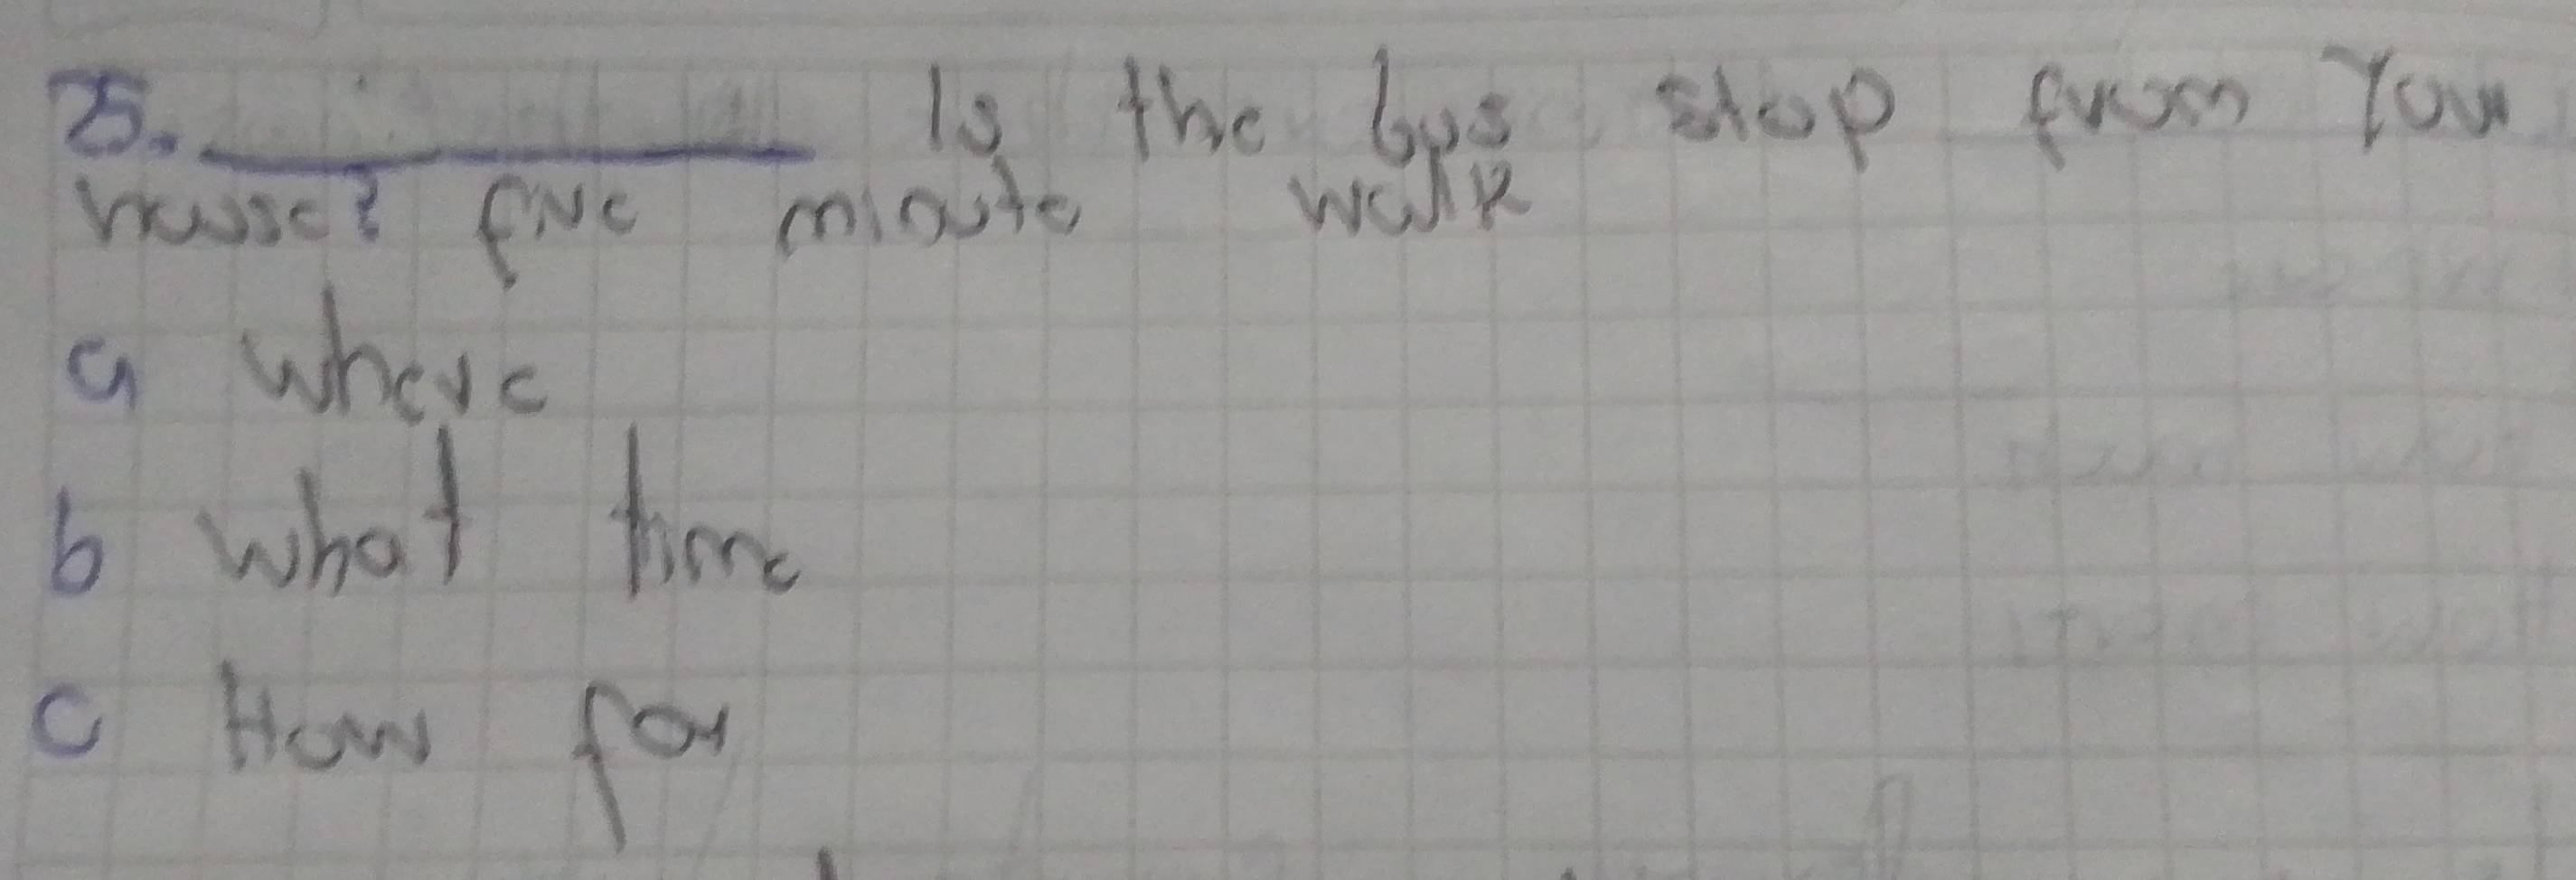 25. ________ Is the bus stop from your
house? five minute walk
a where
b what time
c How far